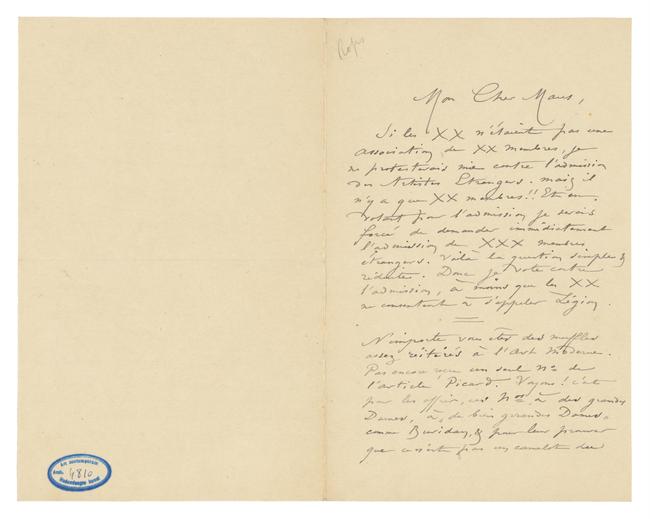 Rops
Mon Cher Maus,
Si les XX n'étaient pas une
association de XX membres, je
ne protesterais mie contre l'admission
des Artistes Etrangers. mais il
n'y a que XX membres!! Et en
votant pour l'admission je serais
forcé de demander immédiatement
l'admission de XXX membres
étrangers. Voilà la question simple &
réduite. Donc je vote contre
l'admission, à moins que les XX
ne consentent à s'appeler Légion.
N'importe vous êtes des muffles
assez réitérés à l'Art Moderne.
Pas encore un seul No de
l'article Picard. Voyons! c'est
pour les offrir, ces Nos, à des grandes
Dames, à de bien grandes Dames
comme Buridan, & pour leur prouver
que ce n'est pas un canelot
Art contemporain
4810
Hedendaagse kunst